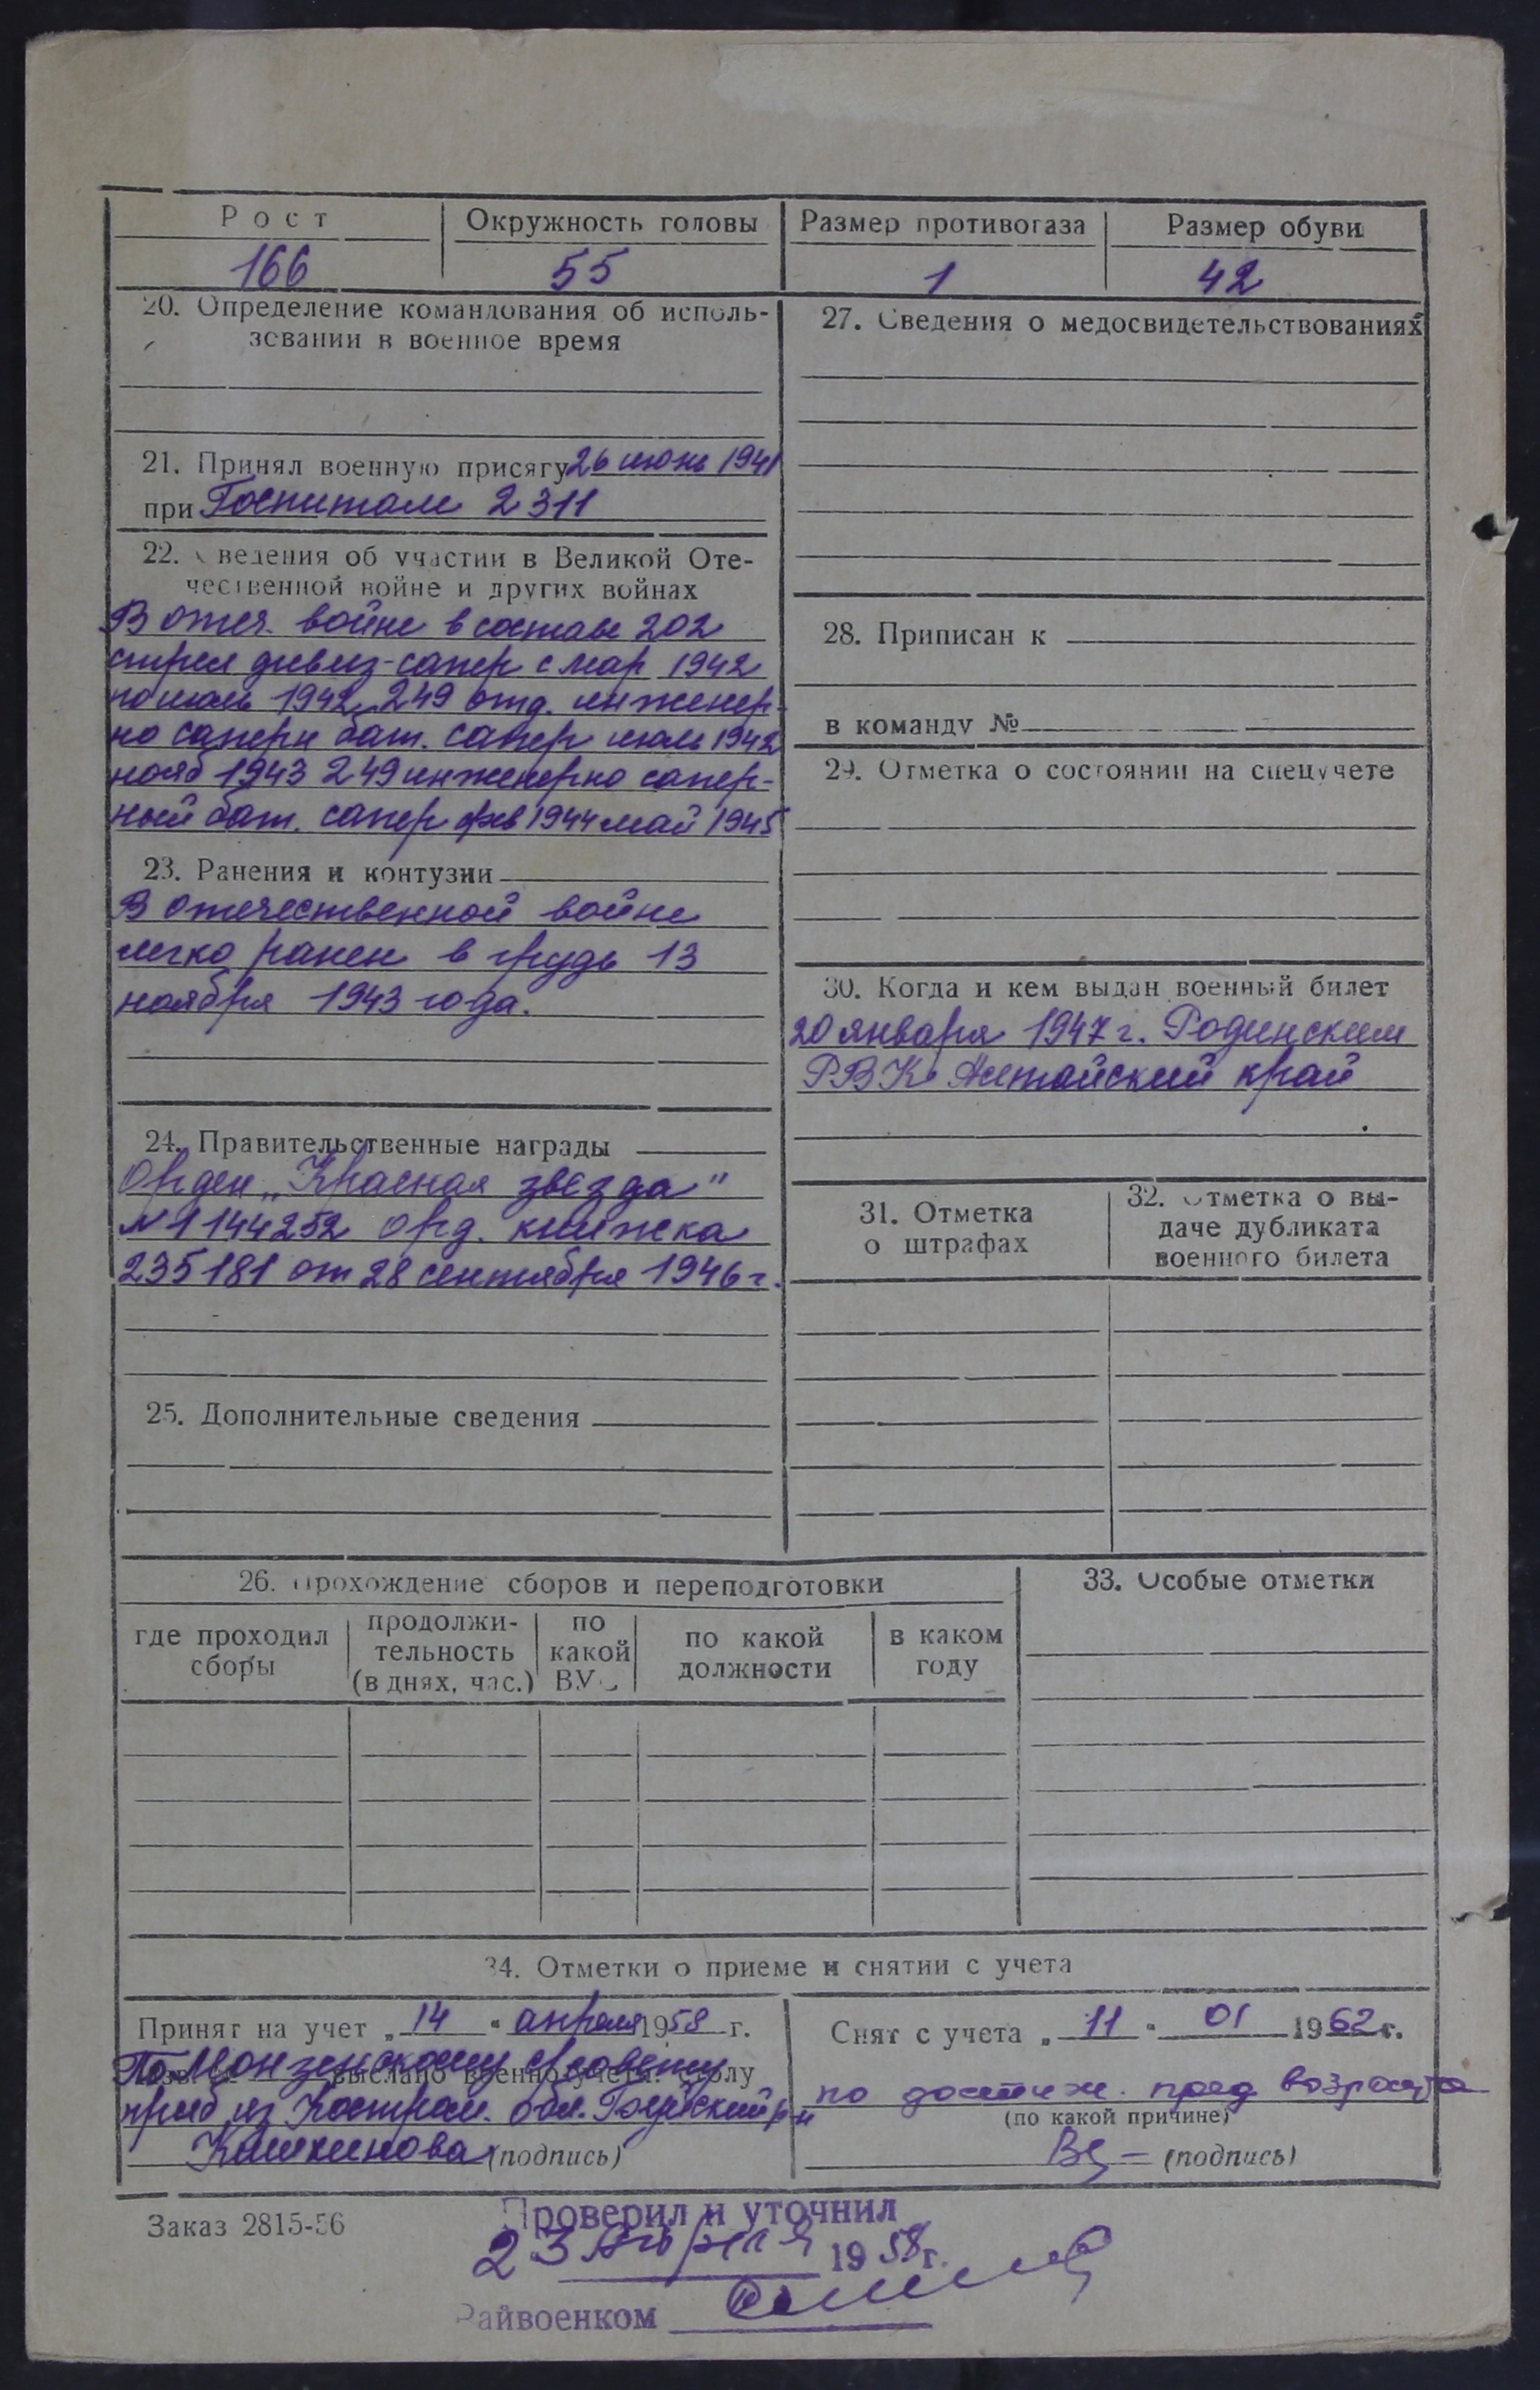 Рост
Окружность головы
Размер противогаза
Размер обуви
166
55
1
42
20. Определение командования об исполь-
зовании в военное время
21. Принял военную присягу 26 июнь 1941
при Госпитале 2311
22. Сведения об участии в Великой Оте-
чественной войне и других войнах
В отеч. войне в составе 202
стрел дивиз-сапер с мар 1942
по июль 1942, 249 отд. инженер-
но саперн бат. сапер июль 1942
нояб 1943 249 инженерно сапер-
ный бат. сапер фев 1944 май 1945
23. Ранения и контузии
В отечественной войне
легко ранен в грудь 13
ноября 1943 года.
24. Правительственные награды
Орден „Красная звезда"
№ 1144252 орд. книжка
235181 от 28 сентября 1946 г.
25. Дополнительные сведения
27. Сведения о медосвидетельствованиях
28. Приписан к
в команду №
29. Отметка о состоянии на спецучете
30. Когда и кем выдан военный билет
20 января 1947 г. Родинским
РВК Алтайский край
31. Отметка
о штрафах
32. Отметка о вы-
даче дубликата
военного билета
26. Прохождение сборов и переподготовки
где проходил
сборы
продолжи-
тельность
(в днях, час.)
по
какой
ВУС
по какой
должности
в каком
году
33. Особые отметки
34. Отметки о приеме и снятии с учета
Принят на учет „ 14 " апреля 1958 г.
По Монзенскому
выслано военно-учетн. столу
приб из Костром. обл.
(подпись)
Снят с учета „ 11 " 01 1962 г.
по достиж. пред возраста
(по какой причине)
(подпись)
Заказ 2815-56
Проверил и уточнил
23 апреля 1958 г.
Райвоенком